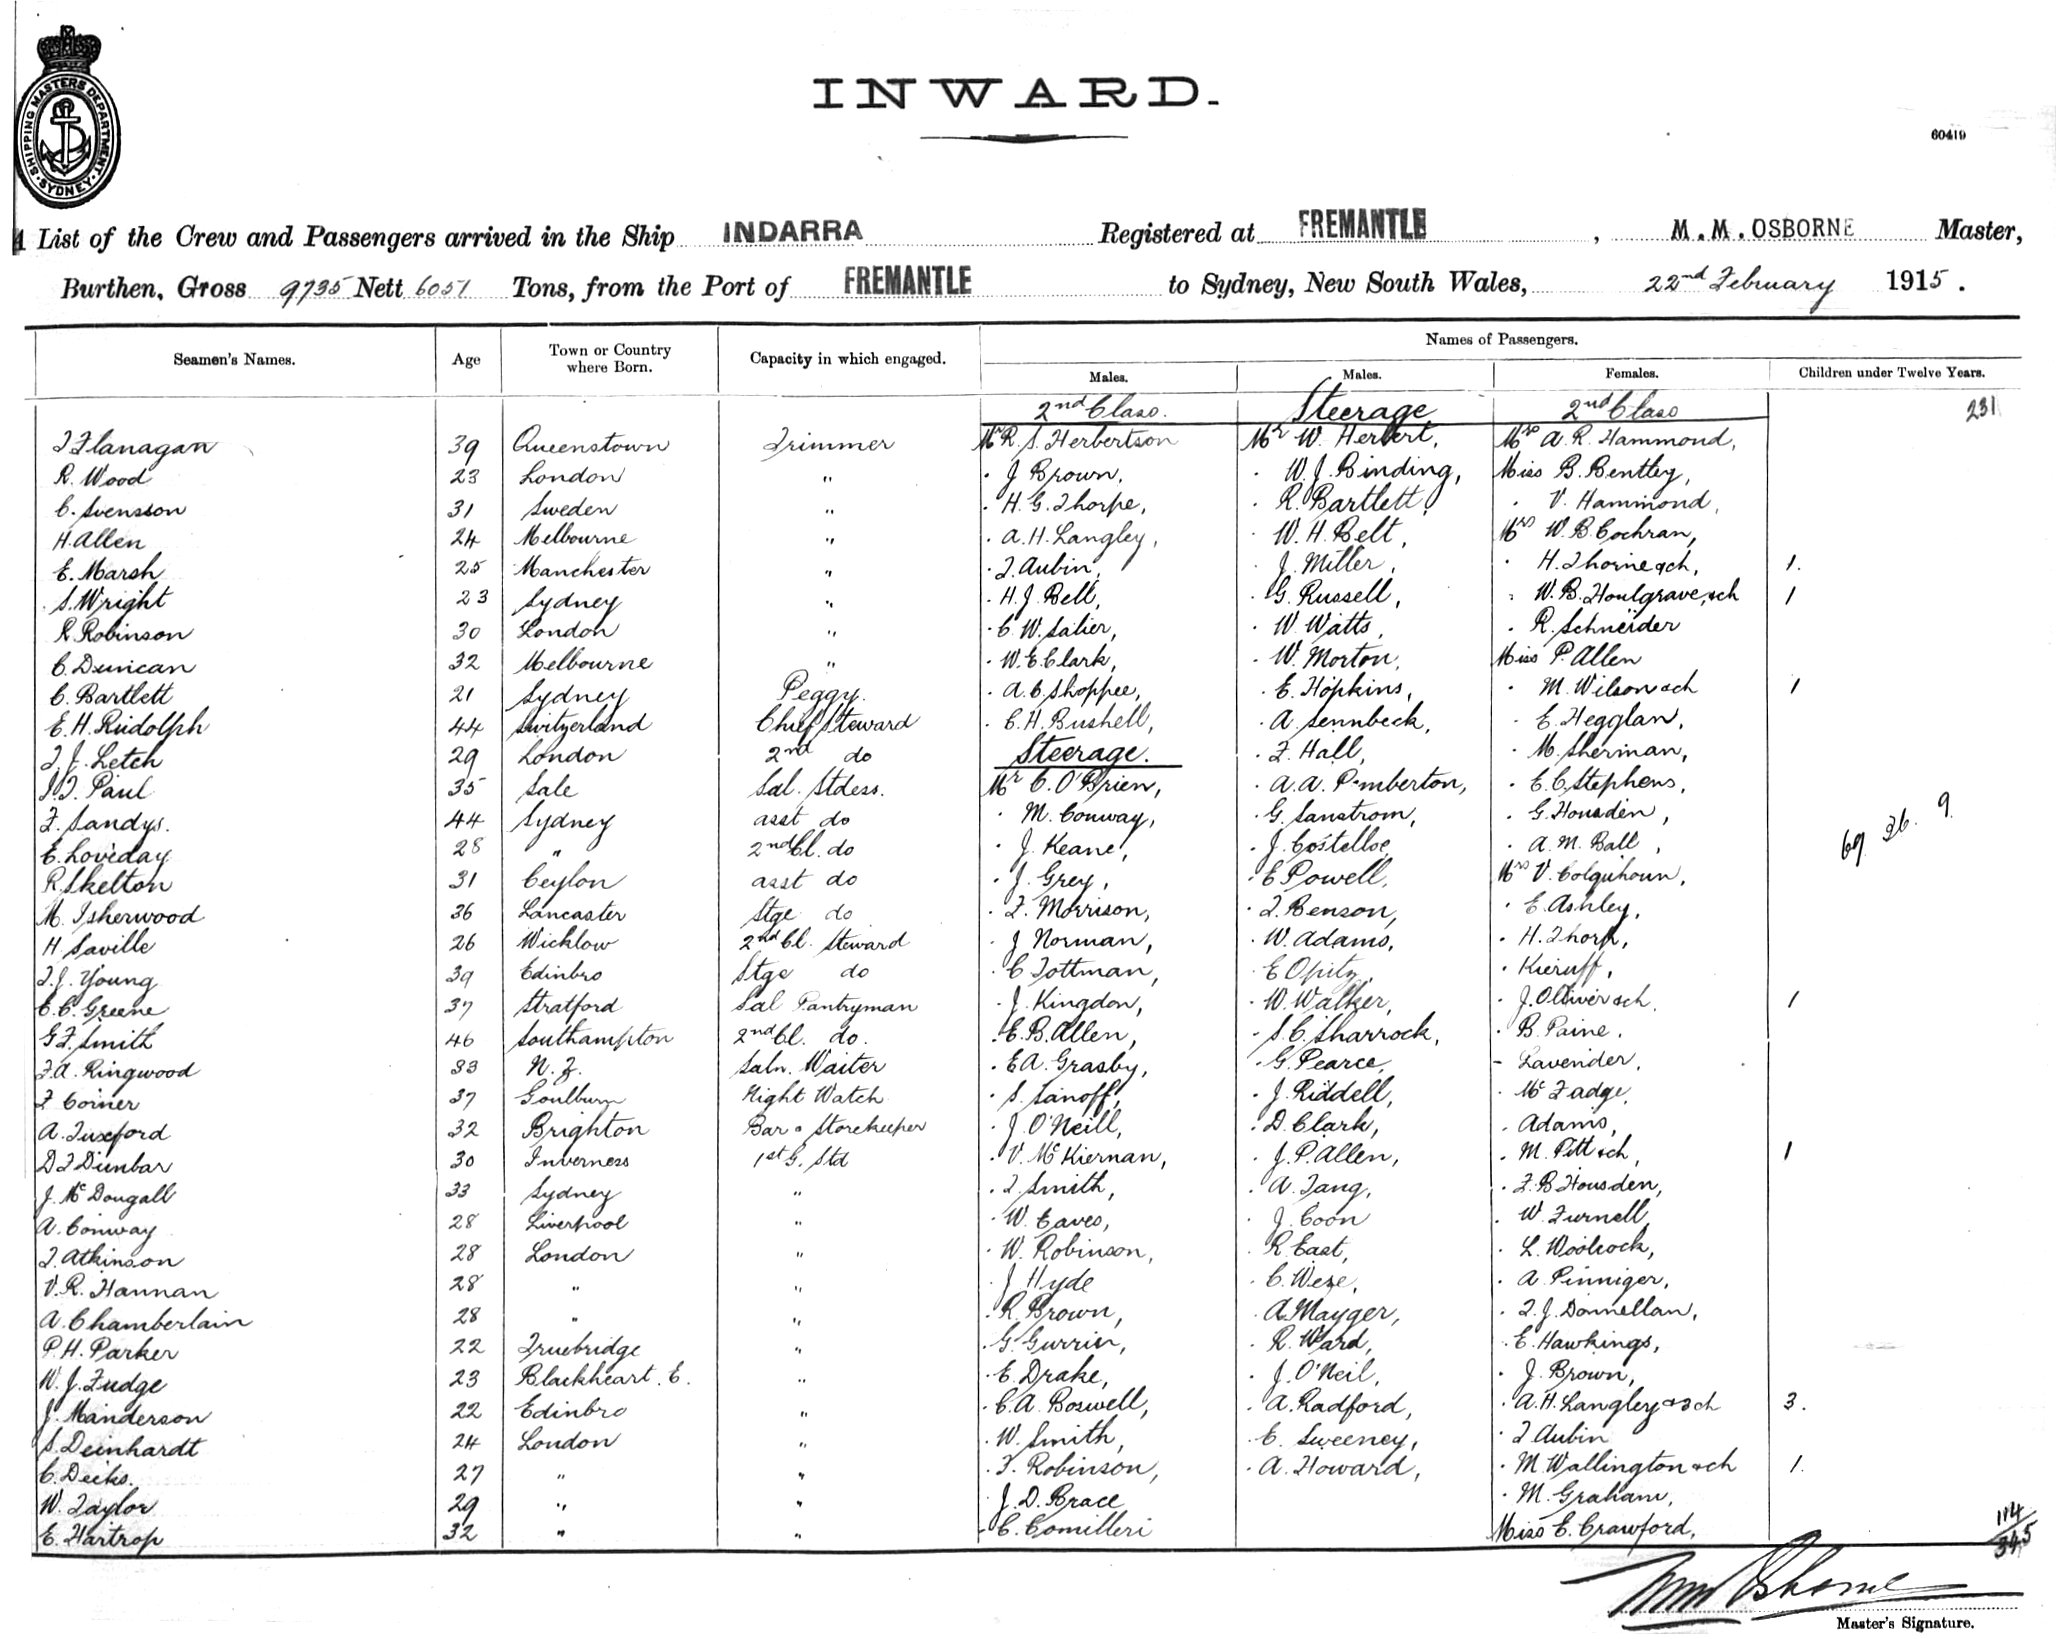 SHIPPING MASTERS DEPARTMENT · SYDNEY ·
INWARD.
60419
A List of the Crew and Passengers arrived in the Ship INDARRA Registered at FREMANTLE , M.M. OSBORNE Master,
Burthen, Gross 9735 Nett 6051 Tons, from the Port of FREMANTLE to Sydney, New South Wales, 22nd February 1915.
Names of Passengers.
Seamen's Names. Age Town or Country where Born. Capacity in which engaged. Males. Males. Females. Children under Twelve Years.
2nd Class. Steerage 2nd Class 231
T Flanagan 39 Queenstown Trimmer Mr R. S. Herbertson Mr W. Herbert, Mrs A. R. Hammond,
R. Wood 23 London " · J Brown, · W. J. Binding, Miss B. Bentley,
C. Svensson 31 Sweden " · H. G. Thorpe, · R. Bartlett, · V. Hammond,
H. Allen 24 Melbourne " · A. H. Langley, · W. H. Belt, Mrs W. B. Cochran,
E. Marsh 25 Manchester " · T. Aubin, · J. Miller, · H. Thorne & ch, 1.
S. Wright 23 Sydney " · H. J. Bell, · G. Russell, · W. B. Houlgrave, & ch 1
R. Robinson 30 London " · C. W. Salier, · W. Watts, · R. Schneider
C. Duncan 32 Melbourne " · W. E. Clark, · W. Morton, Miss P. Allen
C. Bartlett 21 Sydney Peggy. · A. C. Shoppee, · E. Hopkins, · M. Wilson & ch 1
E. H. Rudolph 44 Switzerland Chief Steward · C. H. Bushell, · A. Sennbeck, · E. Hegglan,
T. J. Letch 29 London 2nd do Steerage. · F. Hall, · M. Sherman,
J. T. Paul 35 Sale Sal. Stdess. Mr C. O'Brien, · A. A. Pemberton, · E. C. Stephens,
F. Sandys. 44 Sydney asst do · M. Conway, · G. Sanstrom, · G. Housden,
E. Loveday 28 " 2nd Cl. do · J. Keane, · J. Costelloe, · A. M. Ball, 69 36. 9.
R. Skelton 31 Ceylon asst do · J. Grey, · E Powell, Mrs V. Colquhoun,
M. Isherwood 36 Lancaster Stge do · F. Morrison, · T. Benson, · E. Ashley,
H Saville 26 Wicklow 2nd Cl. Steward · J Norman, · W. Adams, · H. Thorn,
T. J. Young 39 Edinbro Stge do · C Tottman, · E Opitz, · Kieruff,
E. C. Greene 37 Stratford Sal Pantryman · J. Kingdon, · W. Walker, · J. Olliver & ch. 1
G. F. Smith 46 Southampton 2nd Cl. do. · E. B. Allen, · S. C. Sharrock, · B. Paine,
F. A. Ringwood 33 N. Z. Saln. Waiter · E A. Grasby, · G. Pearce, - Lavender,
F Corner 37 Goulburn Night Watch · S. Sanoff, · J. Riddell, · Mc Fadge,
A. Tuxford 32 Brighton Bar & Storekeeper · J. O'Neill, · D. Clark, · Adams,
D F Dunbar 30 Inverness 1st G. Std · V. McKiernan, · J. P. Allen, · M. Pitt & ch, 1
J. McDougall 33 Sydney " · T. Smith, · A. Tang, · F. B Housden,
A. Conway 28 Liverpool " · W. Eaves, · J. Coon · W. Furnell,
T. Atkinson 28 London " · W. Robinson, · R. East, · L. Woolcock,
V. R. Hannan 28 " " · J Hyde · C. Wese, · A. Pinniger,
A. Chamberlain 28 " " · R. Brown, · A. Mayger, · T. J. Donnellan,
P. H. Parker 22 Truebridge " · G. Gurrin, · R. Ward, · E. Hawkings,
W. J. Fudge 23 Blackheart. E. " · E. Drake, · J. O'Neil, · J. Brown,
J. Manderson 22 Edinbro " · C. A. Boswell, · A. Radford, · A. H. Langley & 3 ch 3.
S. Deinhardt 24 London " · W. Smith, · C. Sweeney, · T Aubin
C. Deeks. 27 " " · F. Robinson, · A. Howard, · M. Wallington & ch 1.
W. Taylor 29 " " · J. D. Brace · M. Graham,
E. Hartrop 32 " " - C. Comilleri Miss E. Crawford, 114
345
MM Osborne
Master's Signature.